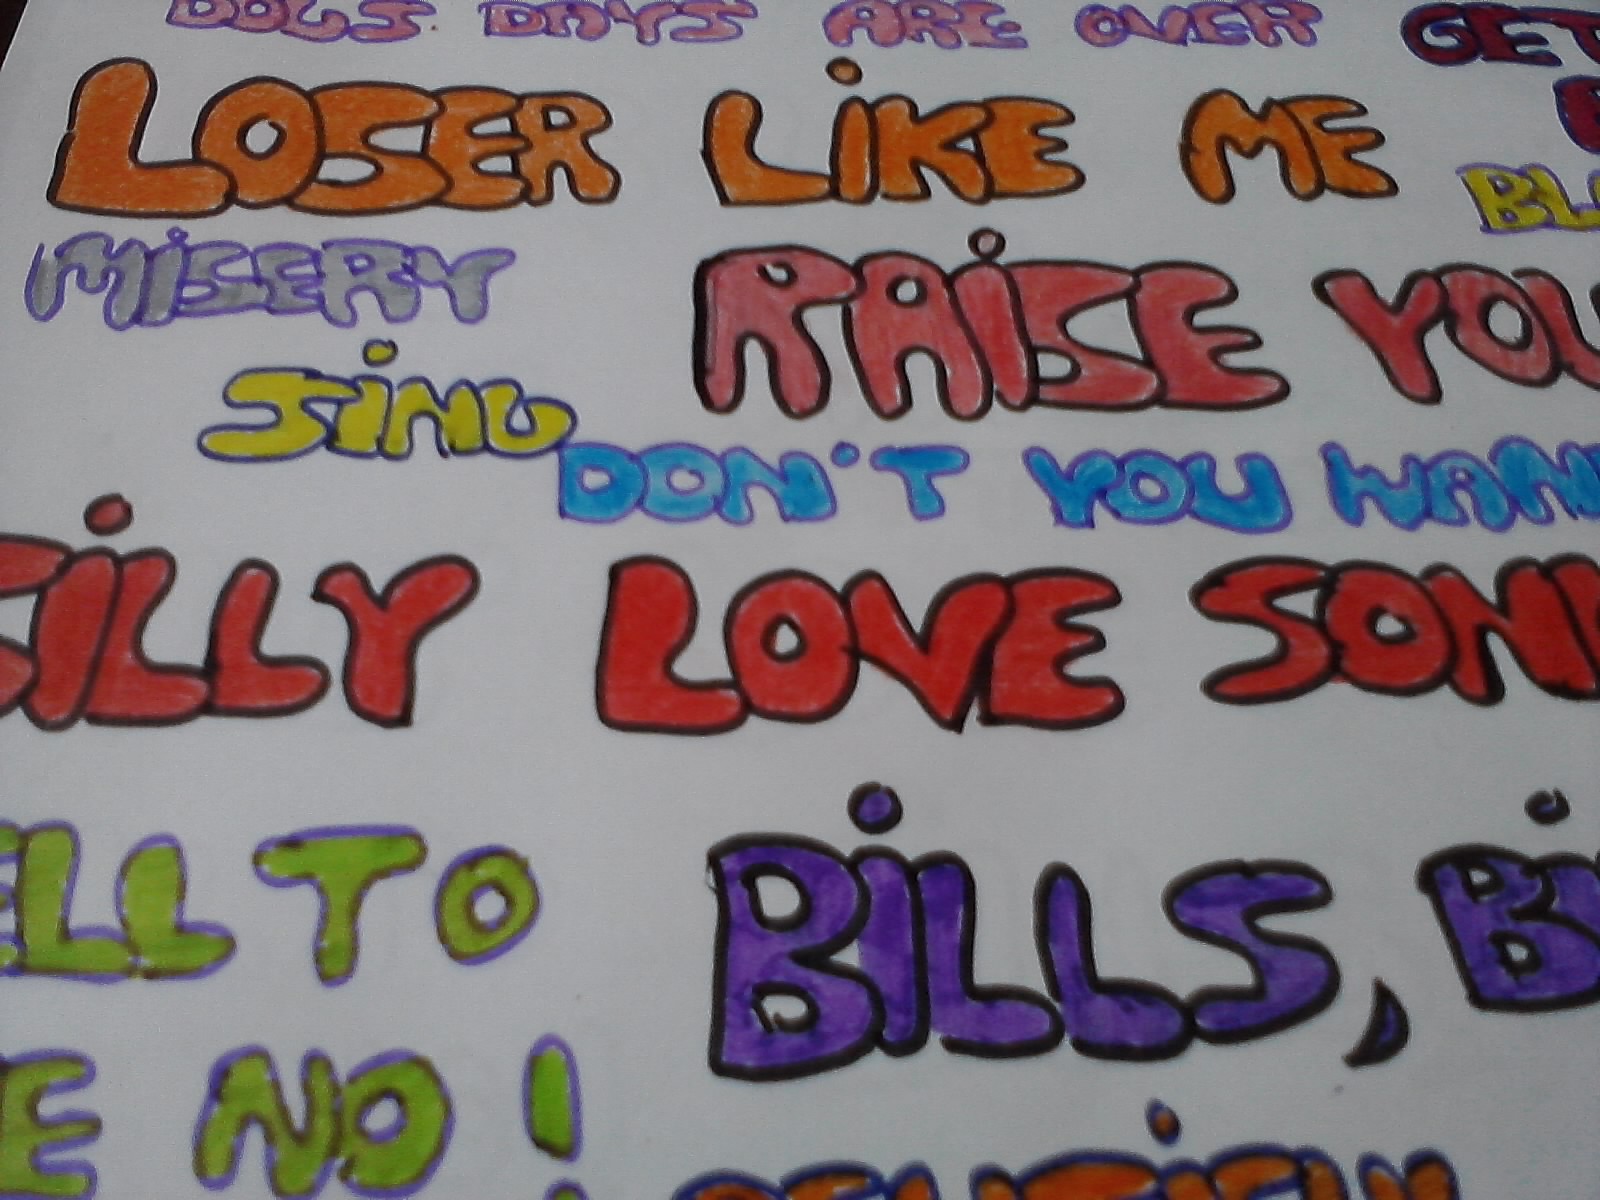 DOGS DAYS ARE OVER GET
LOSER LiKE ME
BL
MiSERY RAiSE YOU
SiNG
DON'T YOU WAN
SiLLY LOVE SON
ELL TO BiLLS, Bi
E NO!